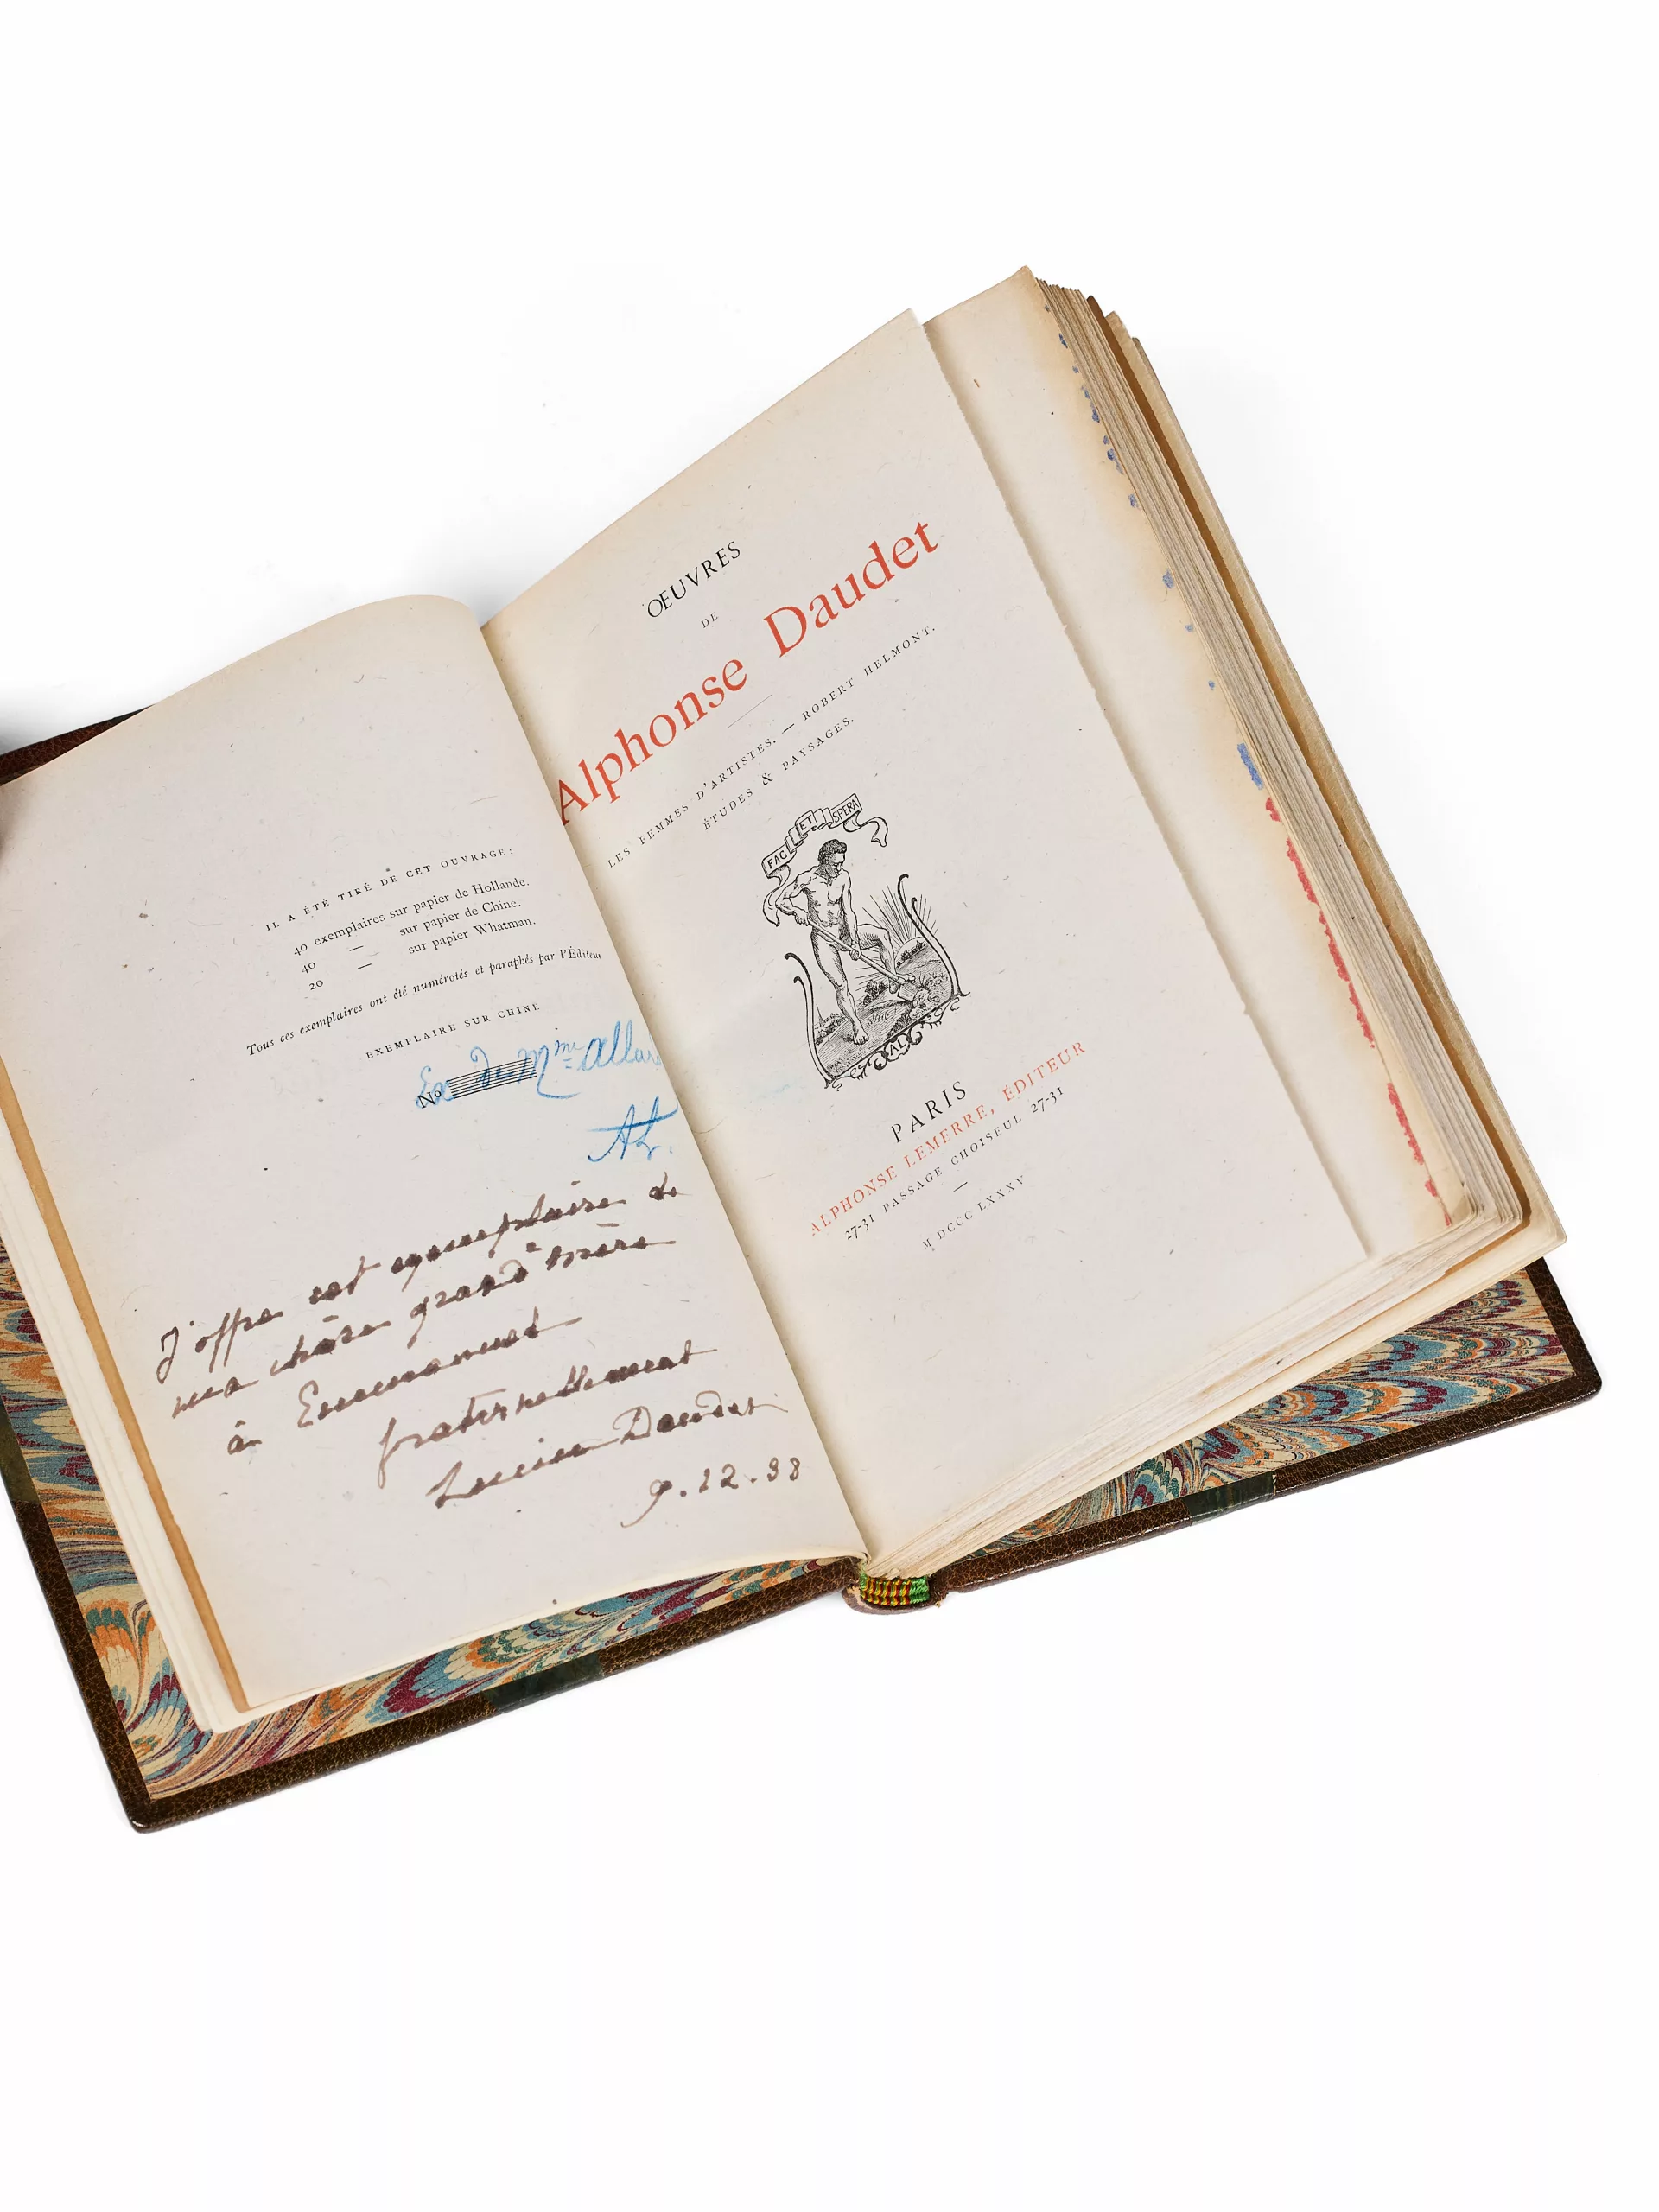 IL A ÉTÉ TIRÉ DE CET OUVRAGE:
40 exemplaires sur papier de Hollande.
40 — sur papier de Chine.
20 — sur papier Whatman.
Tous ces exemplaires ont été numérotés et paraphés par l'Éditeur
EXEMPLAIRE SUR CHINE
No
Ex de Mme Allar
AL.
J'offre cet exemplaire de
ma chère grand'mère
à Emmanuel
fraternellement
Lucien Daudet
9.12.38
ŒUVRES
DE
Alphonse Daudet
LES FEMMES D'ARTISTES. — ROBERT HELMONT.
ÉTUDES & PAYSAGES.
FAC ET SPERA
AL
PARIS
ALPHONSE LEMERRE, ÉDITEUR
27-31 PASSAGE CHOISEUL 27-31
—
M DCCC LXXXV